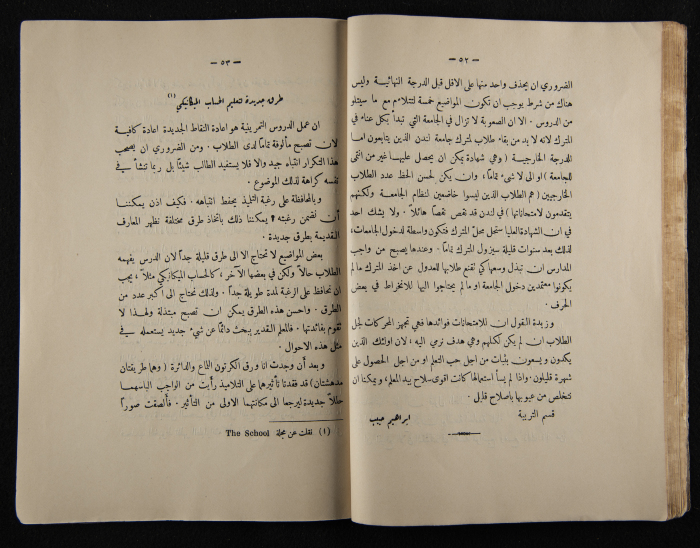 — ٥٢ —
الضروري ان يحذف واحد منها على الاقل قبل الدرجة النهائية وليس
هناك من شرط يوجب ان تكون المواضيع خمسة لتتلاءم مع ما سيتلو
من الدروس . الا ان الصعوبة لا تزال في الجامعة التي تبدأ بكل عناء في
المترك لانه لا بد من بقاء طلاب لمترك جامعة لندن الذين يتابعون اما
للدرجة الخارجية ( وهي شهادة يمكن ان يحصل عليها غير من انتمى
للجامعة ) او الى لا شيء تماماً ، وان يكن لحسن الحظ عدد الطلاب
الخارجيين ( هم الطلاب الذين ليسوا خاضعين لنظام الجامعة ولكنهم
يتقدمون لامتحاناتها ) في لندن قد نقص نقصاً هائلاً . ولا يشك احد
في ان الشهادة العليا ستحل محل المترك فتكون واسطة لدخول الجامعات،
لذلك بعد سنوات قليلة سيزول المترك تماماً . وعندها يصبح من واجب
المدارس ان تبذل وسعها كي تقنع طلابها للعدول عن اخذ المترك ما لم
يكونوا معتمدين دخول الجامعة او ما لم يحتاجوا اليها للانخراط في بعض
الحرف .
وزبدة القول ان للامتحانات فوائدها فهي تجهز المحركات لجل
الطلاب ان لم يكن لكلهم وهي هدف نرمي اليه ، لان اولئك الذين
يكدون ويسعون بثبات من اجل حب التعلم او من اجل الحصول على
شهرة قليلون . واذا لم يسأ استعمالها كانت اقوى سلاح بيد المعلم، ويمكننا ان
نتخلص من عيوبها باصلاح قليل .
قسم التربية ابراهيم حبيب
— ٥٣ —
طرق جديدة لتعليم الحساب الميكانيكي (١)
ان عمل الدروس التمرينية هو اعادة النقاط الجديدة اعادة كافية
لان تصبح مألوفة تماماً لدى الطلاب . ومن الضروري ان يصحب
هذا التكرار انتباه جيد والا فلا يستفيد الطالب شيئاً بل ربما تنشأ في
نفسه كراهة لذلك الموضوع .
وبالمحافظة على رغبة التلميذ يحفظ انتباهه . فكيف اذن يمكننا
أن نضمن رغبته ؟ يمكننا ذلك باتخاذ طرق مختلفة تظهر المعارف
القديمة بطرق جديدة .
بعض المواضيع لا تحتاج الا الى طرق قليلة جداً لان الدرس يفهمه
الطلاب حالاً ولكن في بعضها الآخر ، كالحساب الميكانيكي مثلاً ، يجب
ان نحافظ على الرغبة لمدة طويلة جداً . ولذلك نحتاج الى اكبر عدد من
الطرق . واحسن هذه الطرق يمكن ان تصبح مبتذلة ولهذا لا
تقوم بفائدتها . فالمعلم القدير يبحث دائماً عن شيء جديد يستعمله في
مثل هذه الاحوال .
وبعد أن وجدت انا ورق الكرتون اللماع والدائرة ( وهما طريقتان
مدهشتان ) قد فقدتا تأثيرهما على التلاميذ رأيت من الواجب الباسهما
حللاً جديدة ليرجعا الى مكانتهما الاولى من التأثير . فألصقت صوراً
(١) نقلت عن مجلة The School